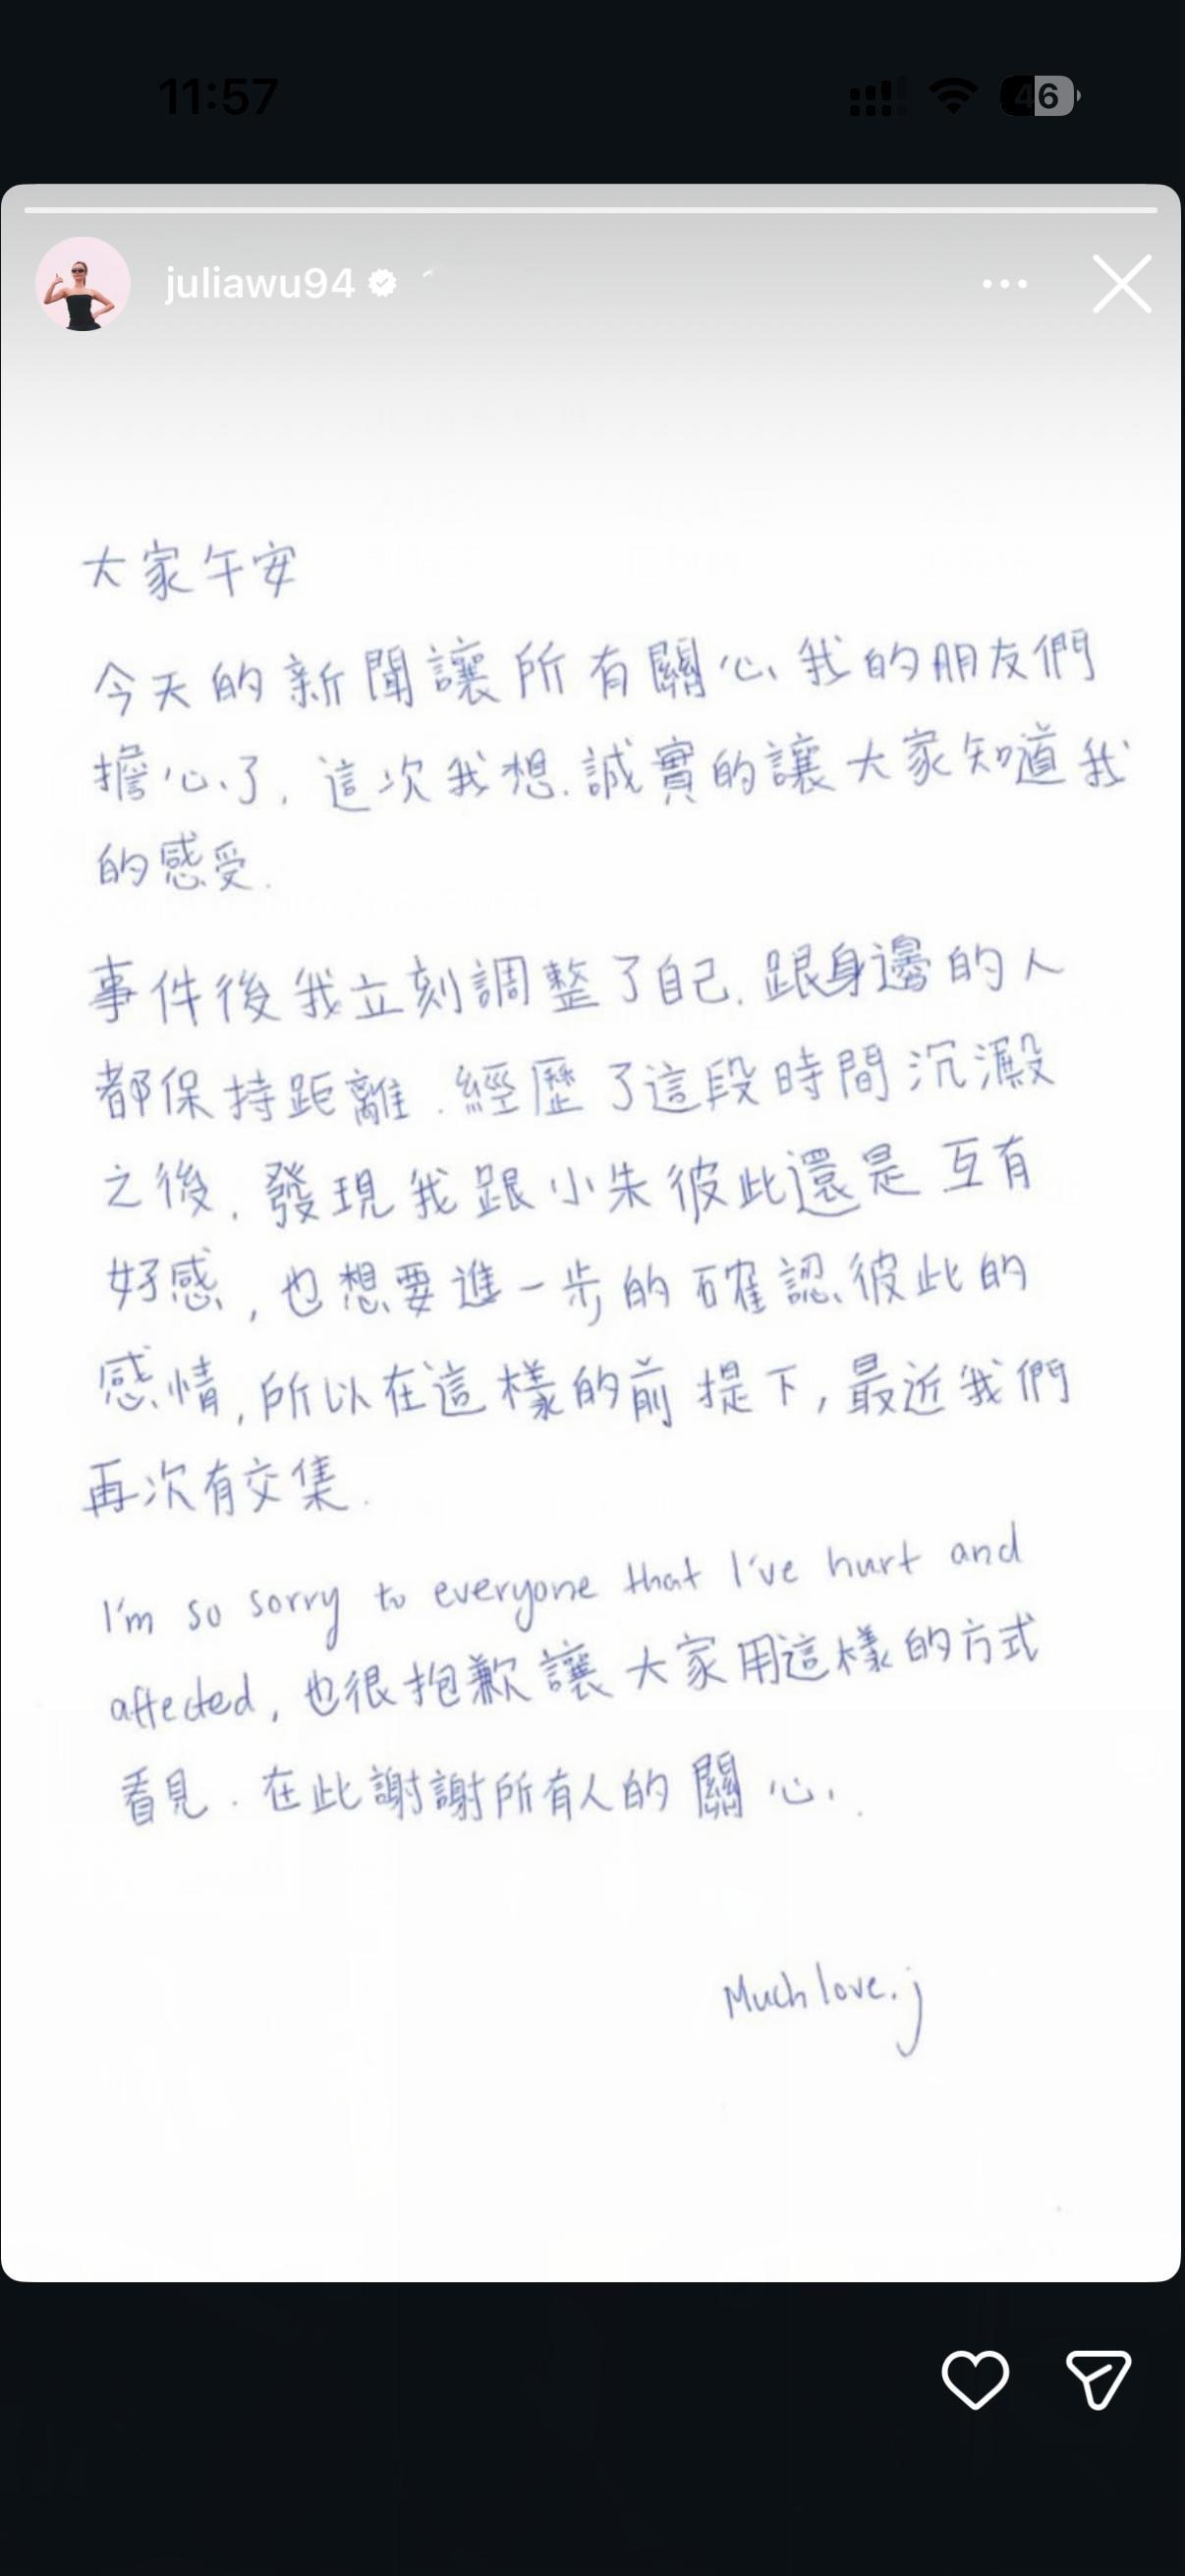 11:57
46
juliawu94
大家午安
今天的新聞讓所有關心我的朋友們
擔心了, 這次我想.誠實的讓大家知道我
的感受.
事件後我立刻調整了自己. 跟身邊的人
都保持距離. 經歷了這段時間沉澱
之後. 發現我跟小朱彼此還是互有
好感, 也想要進一步的確認彼此的
感情, 所以在這樣的前提下, 最近我們
再次有交集.
I'm so sorry to everyone that I've hurt and
affected, 也很抱歉讓大家用這樣的方式
看見. 在此謝謝所有人的關心.
Much love. j